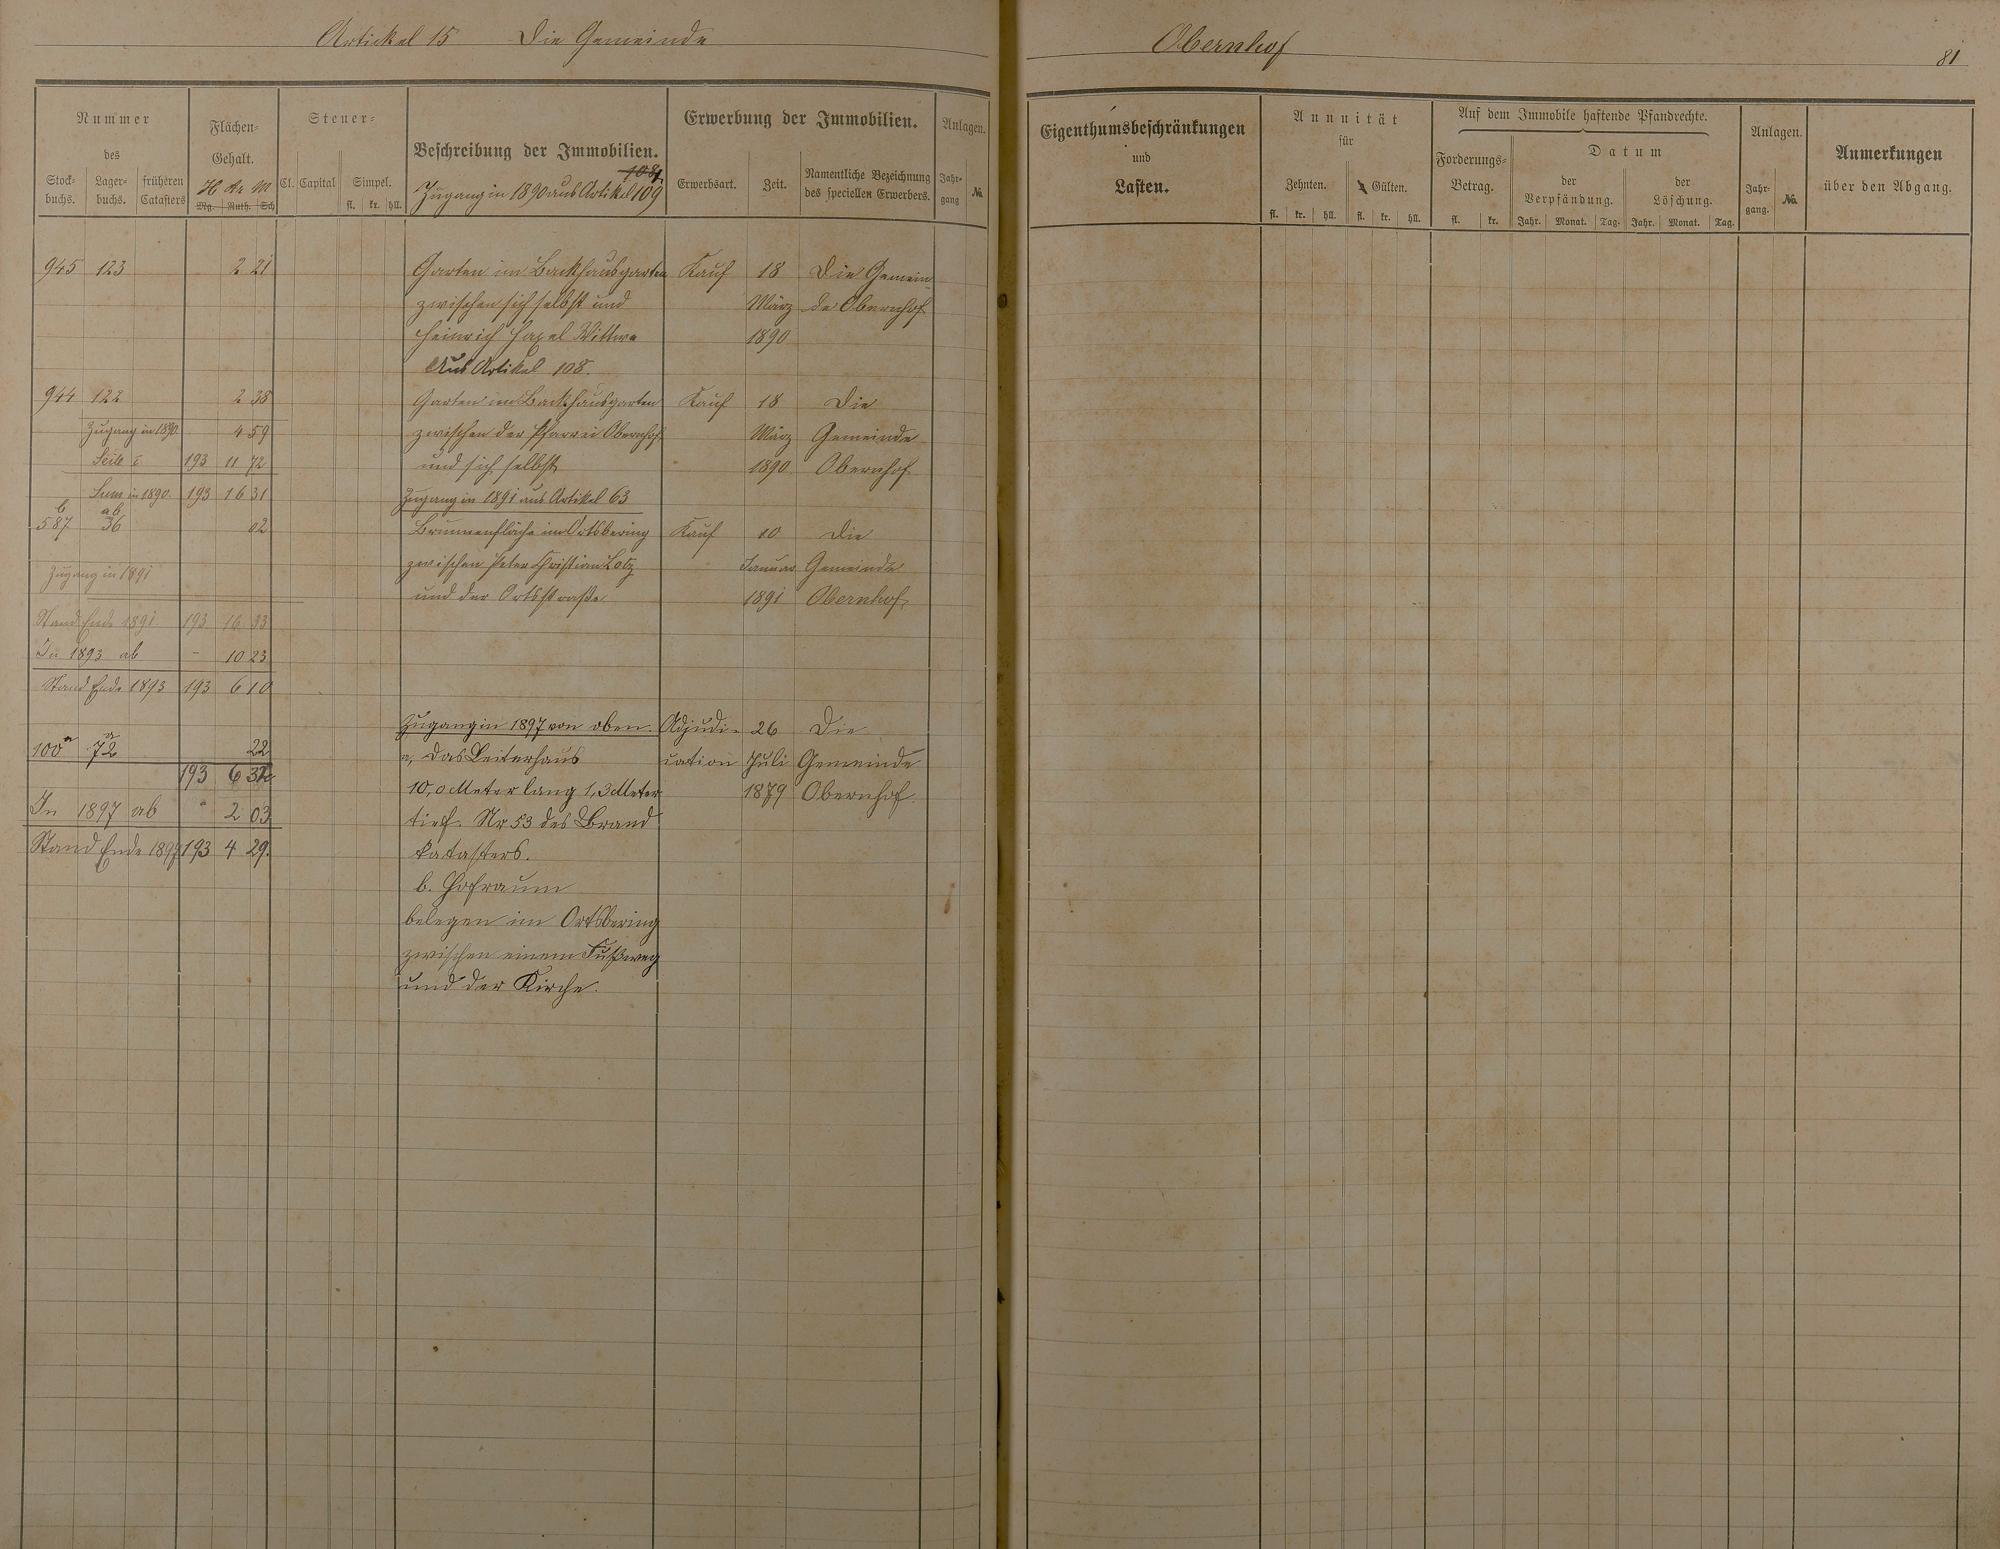 Artickel 15 Die Gemeinde
Obernhof
81
Nummer
des
Stock-
buchs.
Lager-
buchs.
früheren
Catasters
Flächen-
Gehalt.
H Ar M
Mg. Ruth. Sch
Steuer-
Cl. Capital Simpel.
fl. kr. hll.
Beschreibung der Immobilien.
108.
Zugang in 1890 aus Artikel 109
Erwerbung der Immobilien.
Erwerbsart. Zeit. Namentliche Bezeichnung
des speciellen Erwerbers.
Anlagen.
Jahr-
gang
No.
Eigenthumsbeschränkungen
und
Lasten.
Annuität
für
Zehnten. Gülten.
fl. kr. hll. fl. kr. hll.
Auf dem Immobile haftende Pfandrechte.
Forderungs-
Betrag.
fl. kr.
Datum
der
Verpfändung.
der
Löschung.
Jahr. Monat. Tag. Jahr. Monat. Tag.
Anlagen.
Jahr-
gang.
No.
Anmerkungen
über den Abgang.
945 123 2 21 Garten im Backhausgarten Kauf 18 Die Gemein
zwischen sich selbst und März de Obernhof
Heinrich Hazel Wittwe 1890
Aus Artikel 108.
944 122 2 38 Garten im Backhausgarten Kauf 18 Die
Zugang in 1890 4 59 zwischen der Pfarrei Obernhof März Gemeinde
Seite 193 11 72 und sich selbst 1890 Obernhof
Sum in 1890 193 16 31 Zugang in 1891 aus Artikel 63
b ab
587 36 02 Brunnenfläche im Ortsbering Kauf 10 Die
Zugang in 1891 zwischen Peter Christian Lotz Januar Gemeinde
und der Ortsstraße 1891 Obernhof
Stand Ende 1891 193 16 33
In 1893 ab - 10 23
Stand Ende 1893 193 6 10
Zugang in 1897 von oben. Adjudi- 26 Die
100a 72a 22 a, das Leiterhaus cation Juli Gemeinde
193 6 32 10,0 Meter lang 1,3 Meter 1879 Obernhof
In 1897 ab " 2 03 tief. Nr 53 des Brand
Stand Ende 1897 193 4 29. katasters.
b. Hofraum
belegen im Ortsbering
zwischen einem Fußweg
und der Kirche.